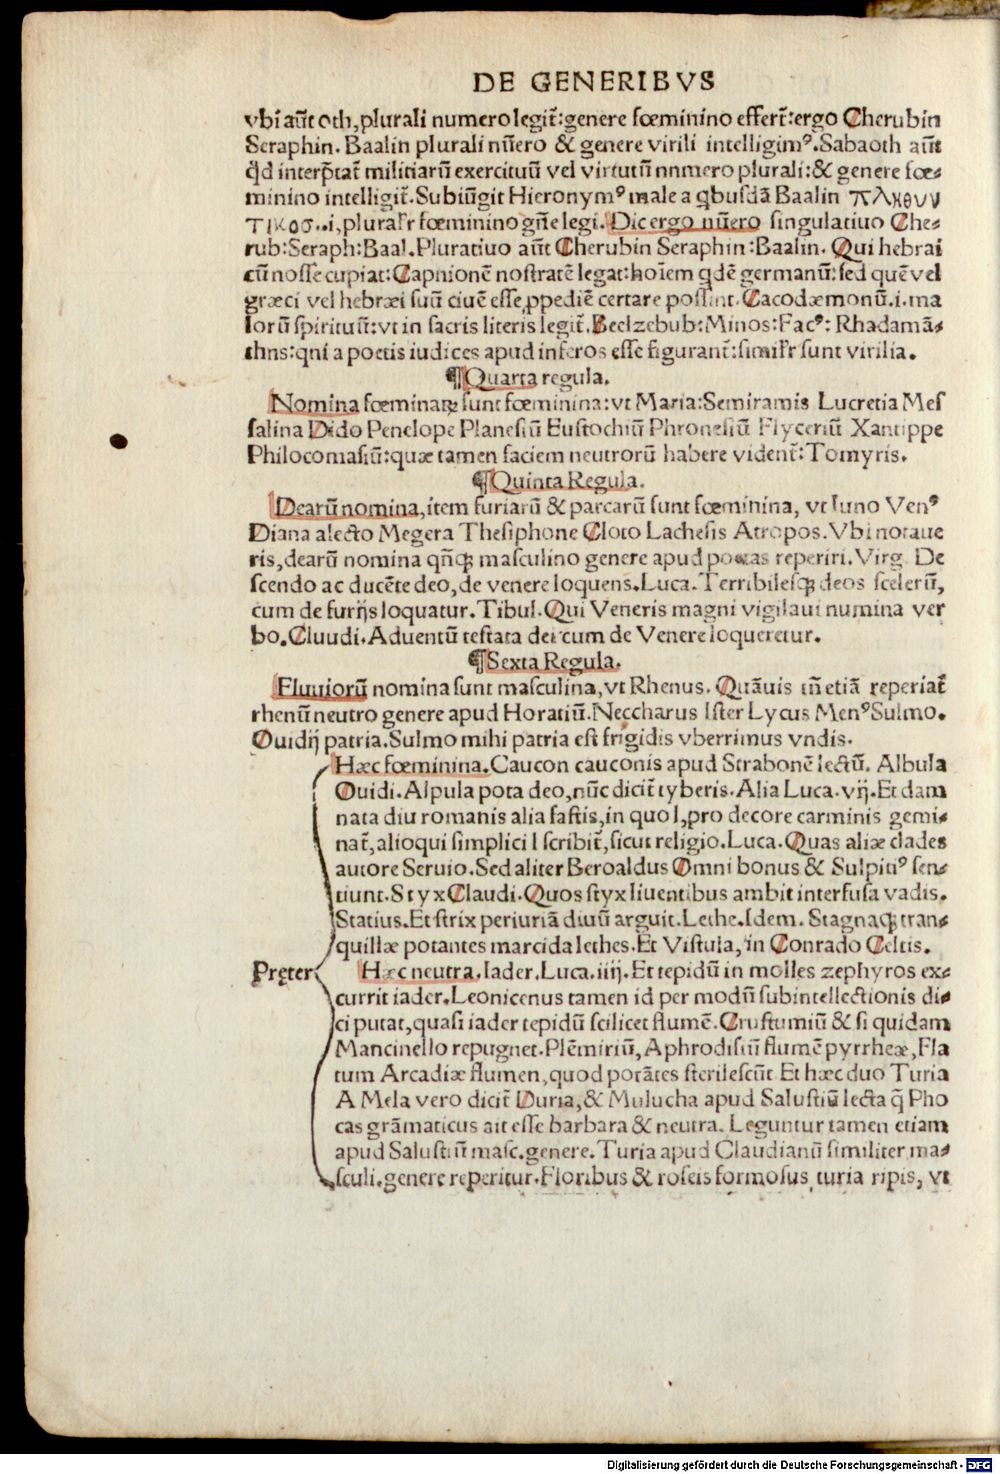 DE GENERIBVS
vbi aūt oth, plurali numero legit̄: genere fœminino effert̄: ergo Cherubin
Seraphin. Baalin plurali nūero & genere virili intelligimꝰ. Sabaoth aūt
qd̄ interp̄tat̄ militiarū exercituū vel virtutū nnmero plurali: & genere fœ-
minino intelligit̄. Subiūgit Hieronymꝰ male a qbusdā Baalin πληθυν
τικοσ..i, pluralr̄ fœminino gn̄e legi. Dic ergo nūero singulatiuo Che-
rub: Seraph: Baal. Pluratiuo aūt Cherubin Seraphin: Baalin. Qui hebrai
cū nosse cupiat: Capnionē nostratē legat: hoīem qdē germanū: sed quē vel
græci vel hebræi suū ciuē esse ꝓpediē certare possint. Cacodæmonū. i. ma
lorū spirituū: vt in sacris literis legit̄. Beelzebub: Minos: Facꝰ: Rhadamā-
thns: qui a poetis iudices apud inferos esse figurant̄: similr̄ sunt virilia.
¶ Quarta regula.
Nomina fœminaꝝ sunt fœminina: vt Maria: Semiramis Lucretia Mes
salina Dido Penelope Planesiū Eustochiū Phronesiū Flyceriū Xantippe
Philocomasiū: quæ tamen faciem neutrorū habere vident̄: Tomyris.
¶ Quinta Regula.
Dearū nomina, item furiarū & parcarū sunt fœminina, vt Iuno Venꝰ
Diana alecto Megera Thesiphone Cloto Lachesis Atropos. Vbi notaue
ris, dearū nomina qn̄qꝫ masculino genere apud poetas reperiri. Virg. De
scendo ac ducēte deo, de venere loquens. Luca. Terribilesqꝫ deos scelerū,
cum de furijs loquatur. Tibul. Qui Veneris magni vigilaui numina ver
bo. Cluudi. Aduentū testata dei cum de Venere loqueretur.
¶ Sexta Regula.
Fluuiorū nomina sunt masculina, vt Rhenus. Quāuis tn̄ etiā reperiat̄
rhenū neutro genere apud Horatiū. Neccharus Ister Lycus Menꝰ Sulmo.
Ouidij patria. Sulmo mihi patria est frigidis vberrimus vndis.
Hæc fœminina. Caucon cauconis apud Strabonē lectū. Albula
Ouidi. Alpula pota deo, nūc dicit̄ tyberis. Alia Luca. vij. Et dam
nata diu romanis alia fastis, in quo l, pro decore carminis gemi-
nat̄, alioqui simplici l scribit̄, sicut religio. Luca. Quas aliæ clades
autore Seruio. Sed aliter Beroaldus Omni bonus & Sulpitiꝰ sen-
tiunt. Styx Claudi. Quos styx liuentibus ambit interfusa vadis.
Statius. Et strix periuriā diuū arguit. Lethe. Idem. Stagnaqꝫ tran-
quillæ potantes marcida lethes. Et Vistula, in Conrado Celtis.
Pręter Hæc neutra. Iader. Luca. iiij. Et tepidū in molles zephyros ex-
currit iader. Leonicenus tamen id per modū subintellectionis di-
ci putat, quasi iader tepidū scilicet flumē. Crustumiū & si quidam
Mancinello repugnet. Plēmiriū, Aphrodisiū flumē pyrrheæ, Fla
tum Arcadiæ flumen, quod potātes sterilescūt Et hæc duo Turia
A Mela vero dicit̄ Duria, & Mulucha apud Salustiū lecta q̄ Pho
cas grāmaticus ait esse barbara & neutra. Leguntur tamen etiam
apud Salustiū masc. genere. Turia apud Claudianū similiter ma-
sculi. genere reperitur. Floribus & roseis formosus turia ripis, vt
Digitalisierung gefördert durch die Deutsche Forschungsgemeinschaft - DFG